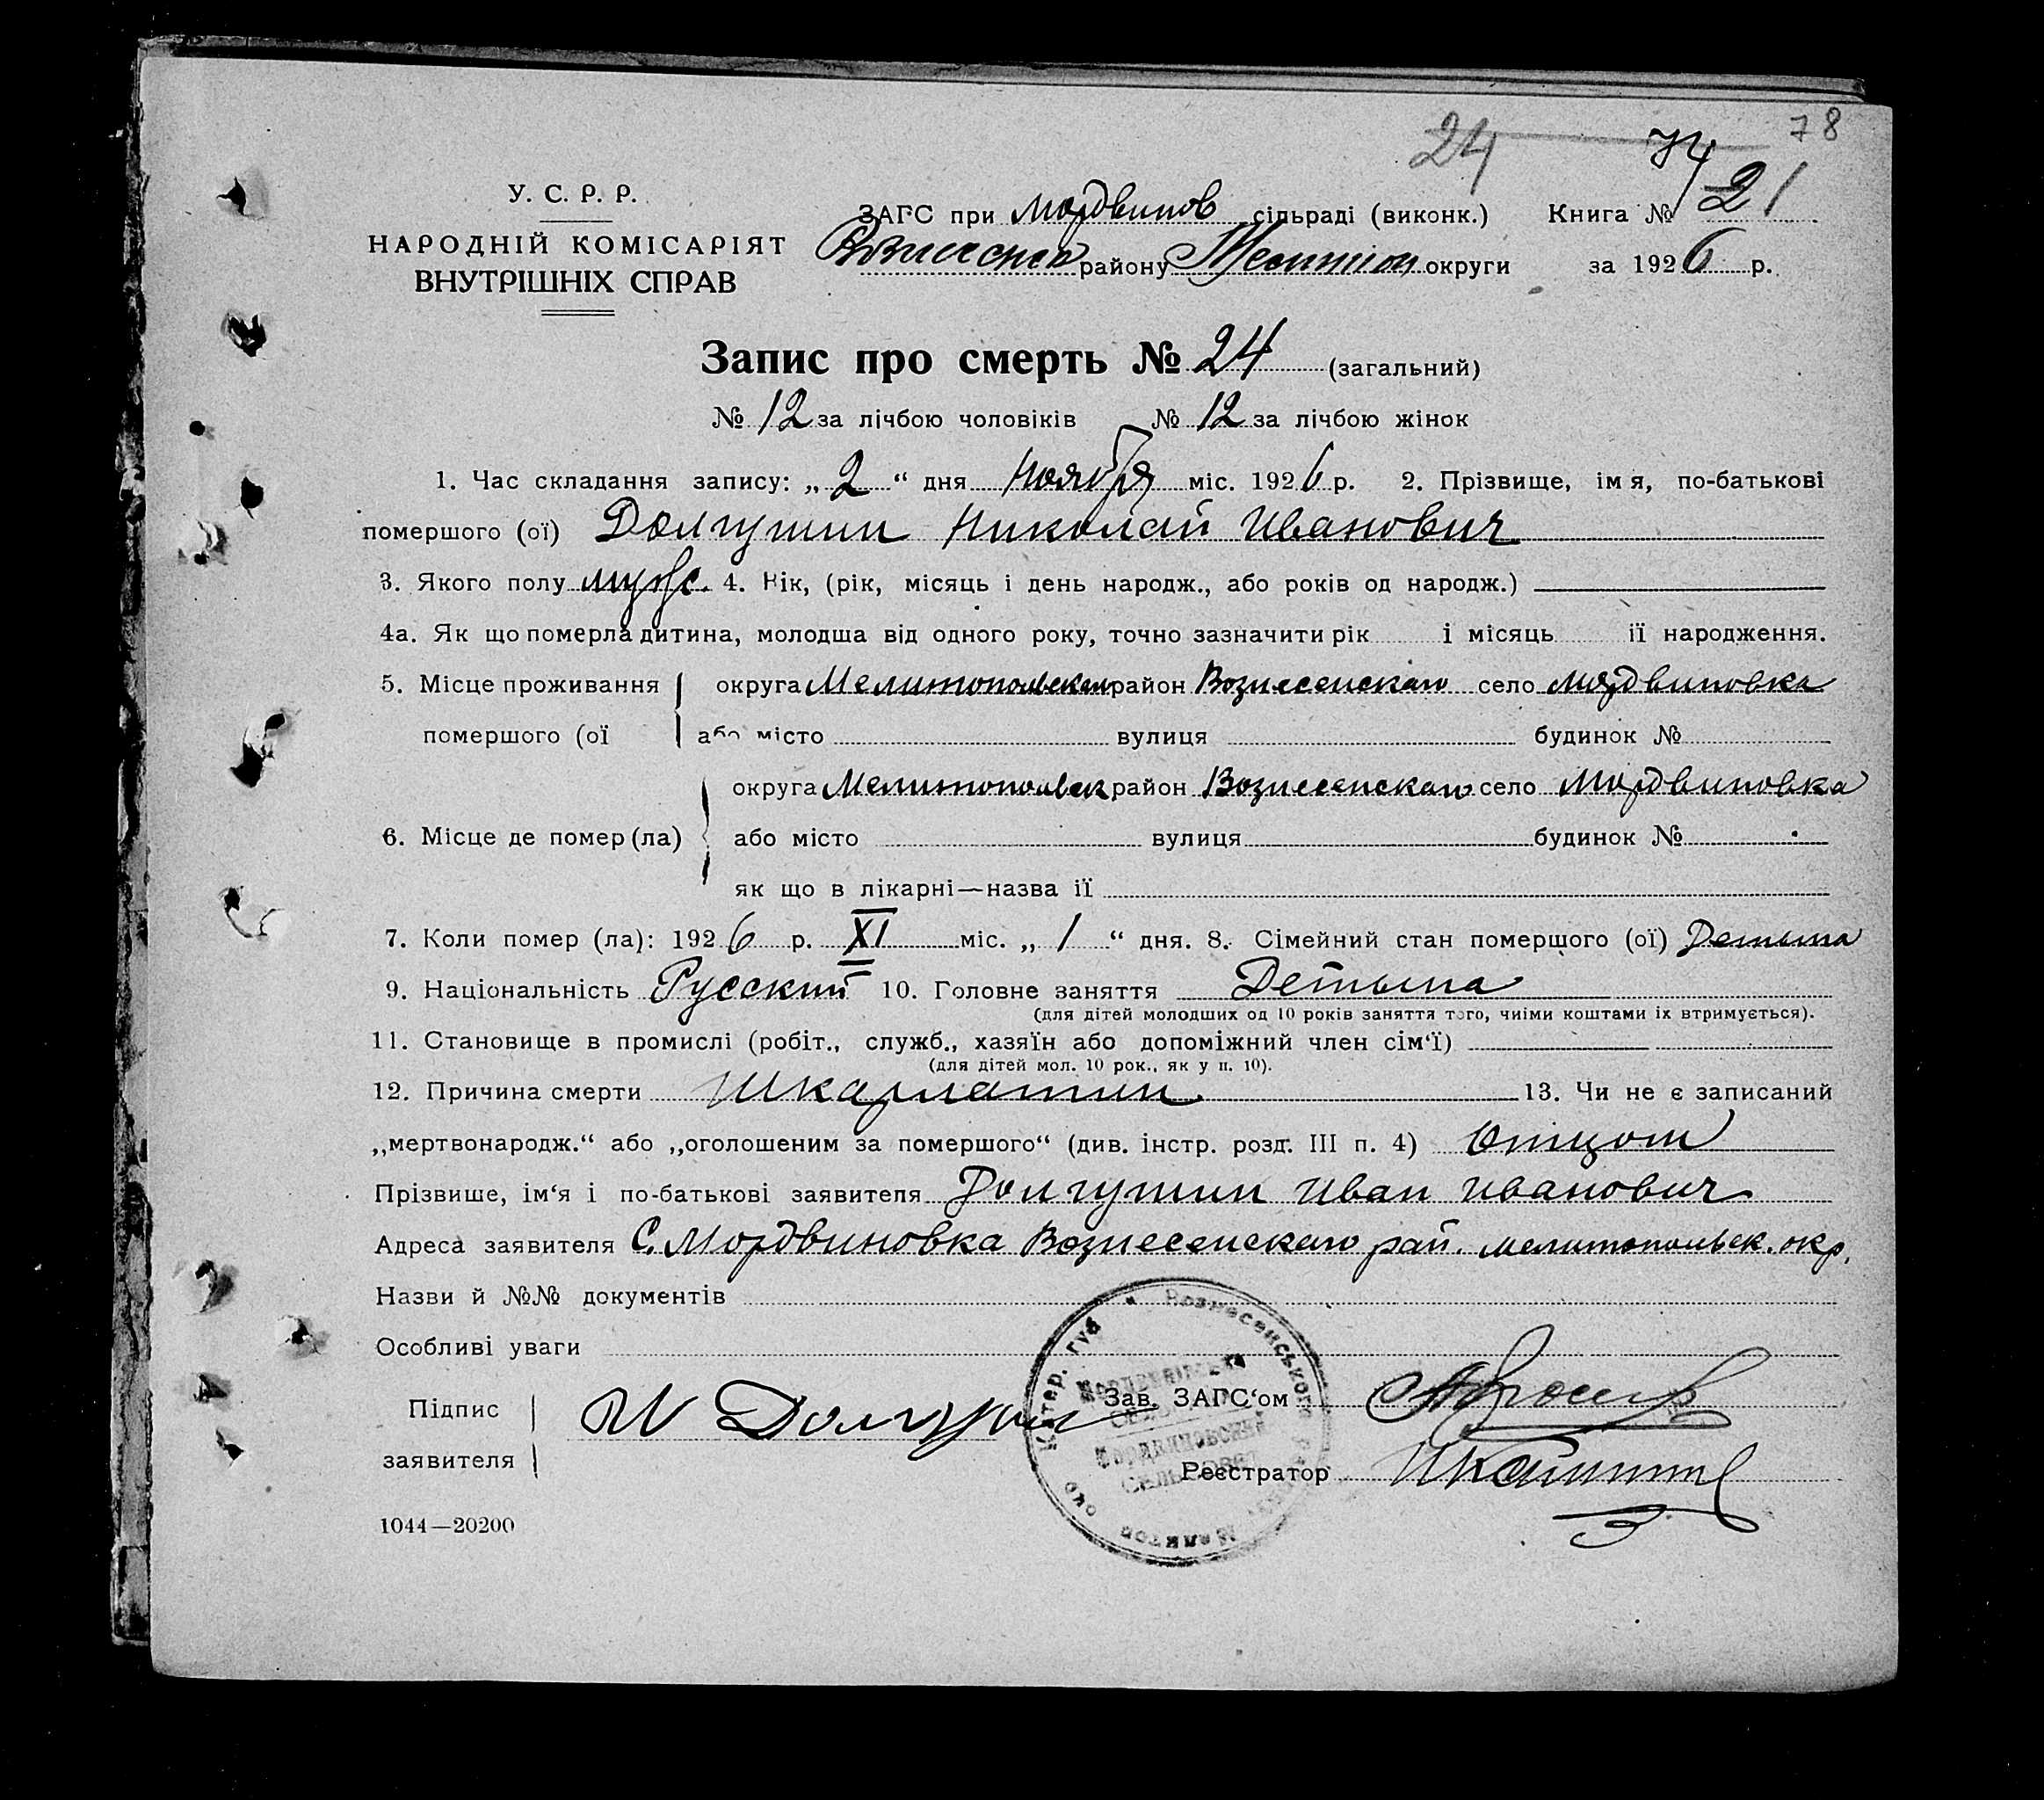 78
24 74
У. С. Р. Р. ЗАГС при Мордвинов сільраді (виконк.) Книга № 21
НАРОДНІЙ КОМІСАРІЯТ району округи за 1926 р.
ВНУТРІШНІХ СПРАВ
Запис про смерть № 24 (загальний)
№ 12 за лічбою чоловіків № 12 за лічбою жінок
1. Час складання запису: „2“ дня Ноября міс. 1926 р. 2. Прізвище, імя, по-батькові
помершого (ої) Долгушин Николай Иванович
3. Якого полу муж. 4. Вік, (рік, місяць і день народж., або років од народж.)
4а. Як що померла дитина, молодша від одного року, точно зазначити рік і місяць її народження.
5. Місце проживання округа Мелитопольская район Вознесенскаго село Мордвиновка
помершого (ої або місто вулиця будинок №
округа Мелитопольск район Вознесенскаго село Мордвиновка
6. Місце де помер (ла) або місто вулиця будинок №
як що в лікарні—назва її
7. Коли помер (ла): 1926 р. XI міс. „1“ дня. 8. Сімейний стан помершого (ої)
9. Національність Русский 10. Головне заняття
(для дітей молодших од 10 років заняття того, чиїми коштами їх втримується).
11. Становище в промислі (робіт., служб., хазяїн або допоміжний член сім‘ї)
(для дітей мол. 10 рок., як у п. 10).
12. Причина смерти Шкарлатин 13. Чи не є записаний
„мертвонародж.“ або „оголошеним за помершого“ (див. інстр. розд. III п. 4) Отцом
Прізвише, ім‘я і по-батькові заявителя Долгушин Иван Иванович
Адреса заявителя С. Мордвиновка Вознесенскаго рай. Мелитопольск. окр.
Назви й №№ документів
Особливі уваги
Підпис И Долгушин Зав. ЗАГС‘ом
заявителя Реєстратор
1044—20200
Катер. губ Вознесенського